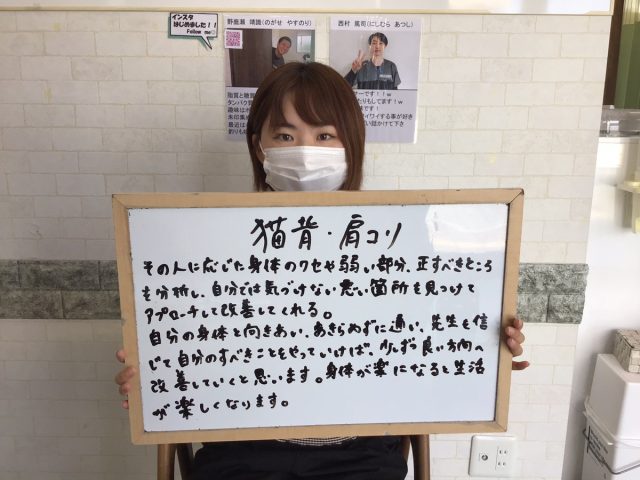 インスタ
はじめました！！
Follow me
野鹿瀬 靖識(のがせ やすのり)
西村 篤司(にしむら あつし)
猫背・肩コリ
その人に応じた身体のクセや弱い部分、正すべきところ
を分析し、自分では気づけない悪い箇所を見つけて
アプローチして改善してくれる。
自分の身体と向きあい、あきらめずに通い、先生を信
じて自分のすべきことをやっていけば、少しずつ良い方向へ
改善していくと思います。身体が楽になると生活
が楽しくなります。